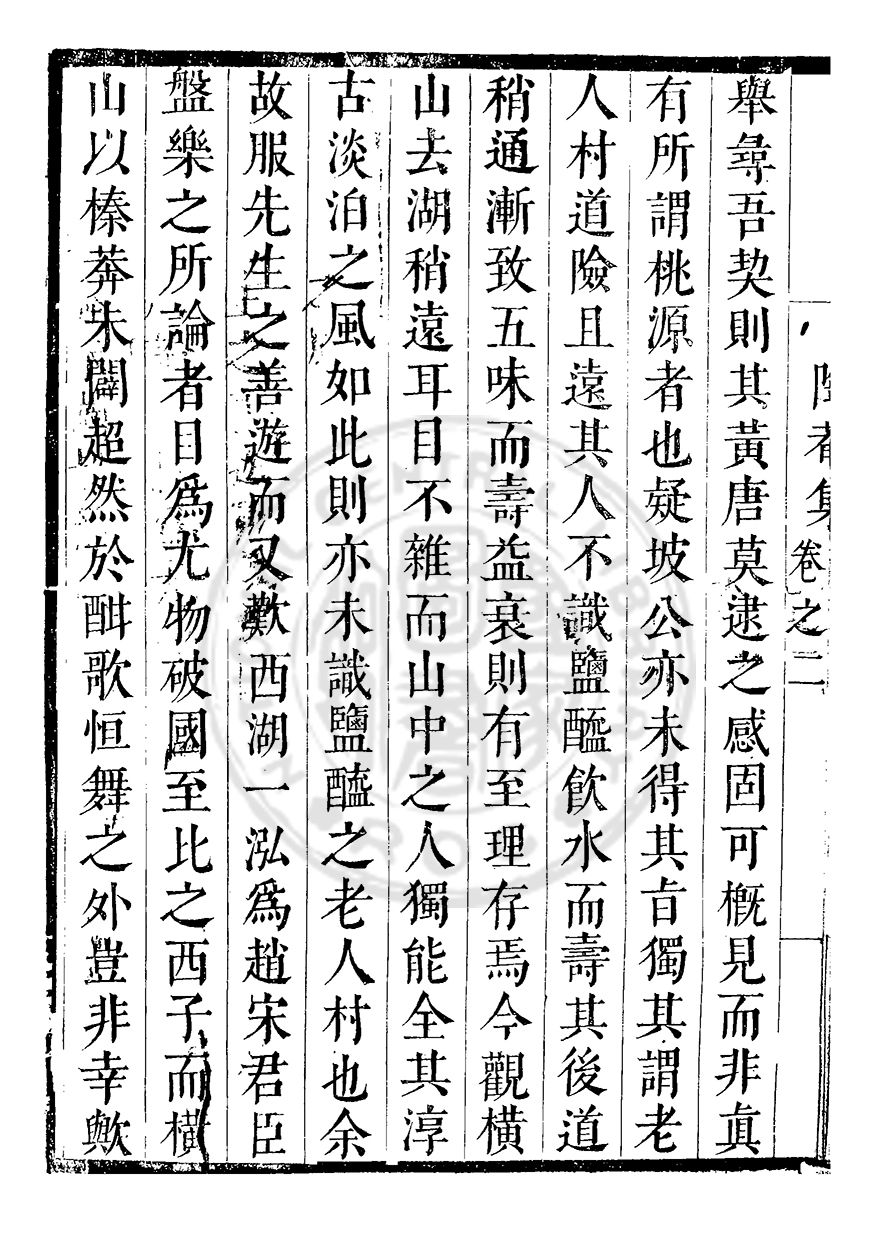 卷之二
舉尋吾契則其黃唐莫逮之感固可槪見而非眞
有所謂桃源者也疑坡公亦未得其旨獨其謂老
人村道險且遠其人不識鹽醯飮水而壽其後道
稍通漸致五味而壽益衰則有至理存焉今觀橫
山去湖稍遠耳目不雜而山中之人獨能全其淳
古淡泊之風如此則亦未識鹽醯之老人村也余
故服先生之善遊而又歎西湖一泓爲趙宋君臣
盤樂之所論者目爲尤物破國至比之西子而橫
山以榛莽未闢超然於酣歌恒舞之外豈非幸歟